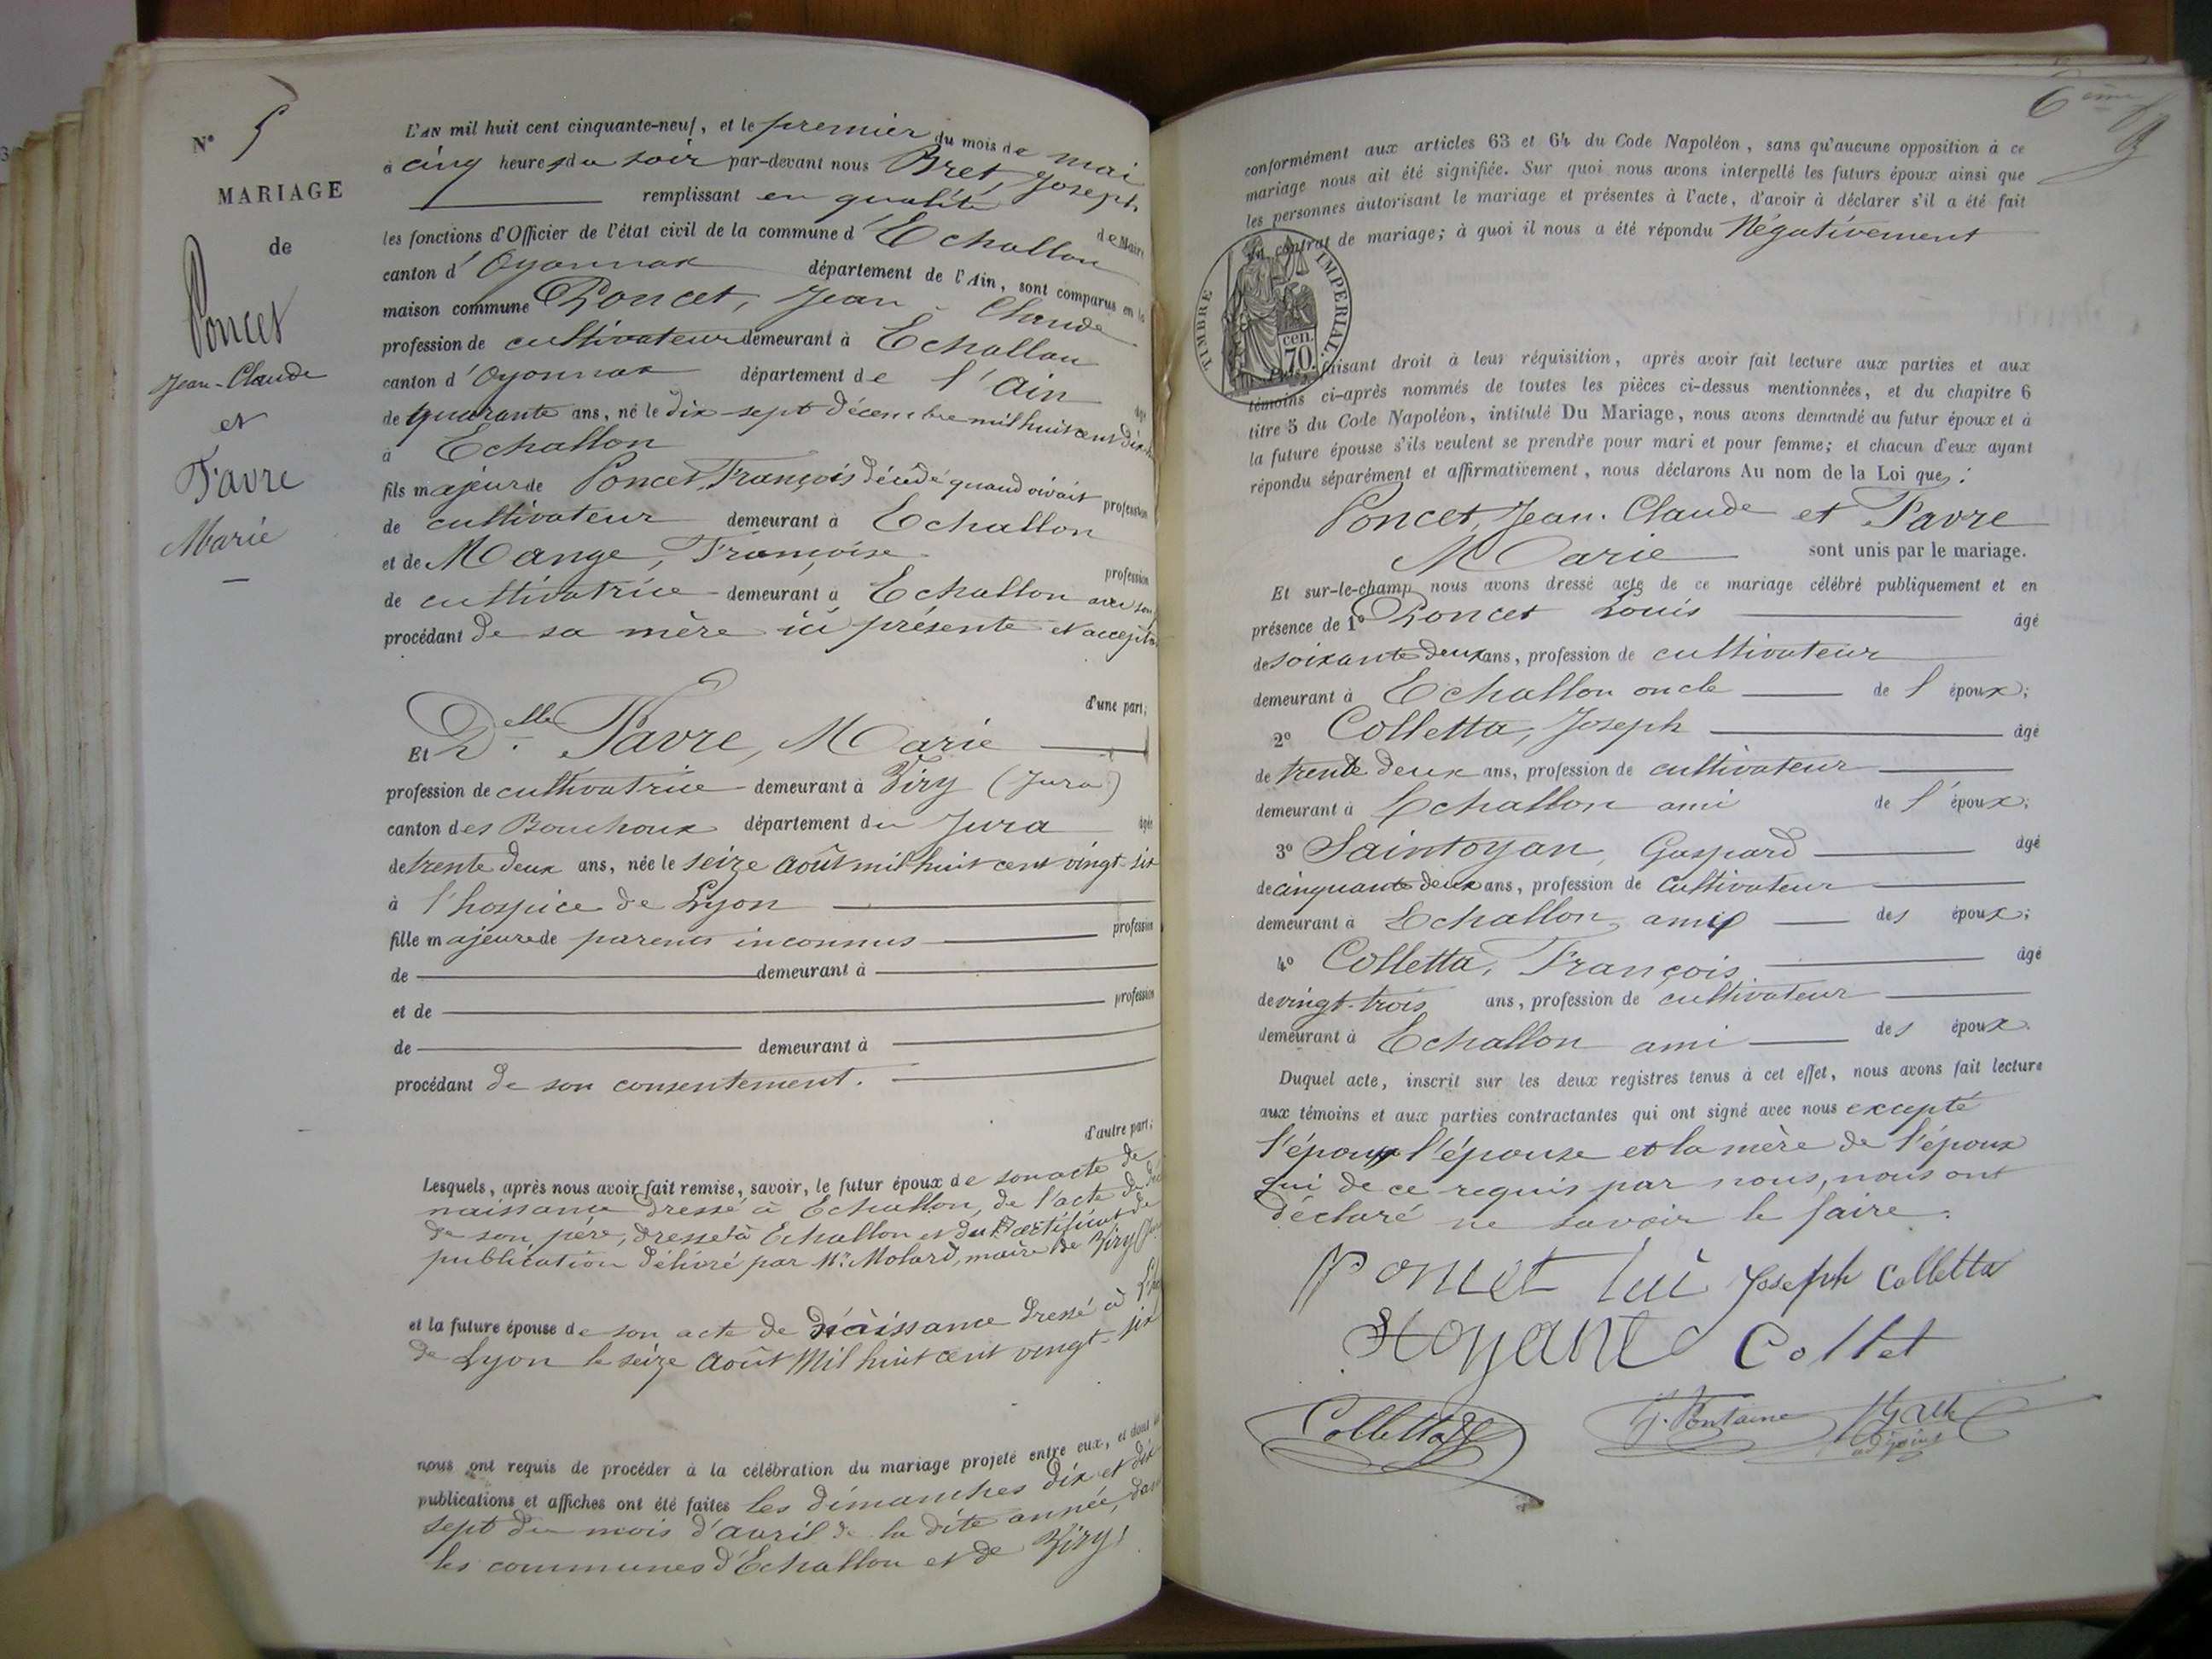 N° 5
MARIAGE
de
Poncet
Jean-Claude
et
Favre
Marie
L'AN mil huit cent cinquante-neuf, et le premier du mois de mai
à cinq heures du soir par-devant nous Bret, Joseph
remplissant en qualité de Maire
les fonctions d'Officier de l'état civil de la commune d'Echallon
canton d'Oyonnax département de l'Ain, sont comparus en la
maison commune Poncet, Jean-Claude
profession de cultivateur demeurant à Echallon
canton d'Oyonnax département de l'Ain
de quarante ans, né le dix-sept Décembre mil huit cent dix-
à Echallon
fils majeur de Poncet, François décédé quand vivait profession
de cultivateur demeurant à Echallon
et de Mange, Françoise profession
de cultivatrice demeurant à Echallon avec son
procédant de sa mère ici présente et accepta
d'une part;
Et Delle Favre, Marie
profession de cultivatrice demeurant à Viry (Jura)
canton des Bouchoux département du Jura âgée
de trente deux ans, née le seize août mil huit cent vingt-six
à l'hospice de Lyon
fille majeure de parents inconnus profession
de demeurant à
et de profession
de demeurant à
procédant de son consentement.
d'autre part;
Lesquels, après nous avoir fait remise, savoir, le futur époux de son acte de
naissance dressé à Echallon, de l'acte de
de son père, dressé à Echallon et du certificat de
publication délivré par Mr. Molard, maire de Viry
et la future épouse de son acte de naissance dressé à
de Lyon le seize août mil huit cent vingt-six
nous ont requis de procéder à la célébration du mariage projeté entre eux, et dont
publications et affiches ont été faites les dimanches dix et dix
sept du mois d'avril de la dite année, dans
les communes d'Echallon et de Viry;
6ème
conformément aux articles 63 et 64 du Code Napoléon, sans qu'aucune opposition à ce
mariage nous ait été signifiée. Sur quoi nous avons interpellé les futurs époux ainsi que
les personnes autorisant le mariage et présentes à l'acte, d'avoir à déclarer s'il a été fait
un contrat de mariage; à quoi il nous a été répondu Négativement
TIMBRE IMPERIAL.
70 cen.
faisant droit à leur réquisition, après avoir fait lecture aux parties et aux
témoins ci-après nommés de toutes les pièces ci-dessus mentionnées, et du chapitre 6
titre 5 du Code Napoléon, intitulé Du Mariage, nous avons demandé au futur époux et à
la future épouse s'ils veulent se prendre pour mari et pour femme; et chacun d'eux ayant
répondu séparément et affirmativement, nous déclarons Au nom de la Loi que:
Poncet, Jean-Claude et Favre
Marie sont unis par le mariage.
Et sur-le-champ nous avons dressé acte de ce mariage célébré publiquement et en
présence de 1° Poncet Louis âgé
de soixante deux ans, profession de cultivateur
demeurant à Echallon oncle de l'époux;
2° Colletta, Joseph âgé
de trente deux ans, profession de cultivateur
demeurant à Echallon ami de l'époux;
3° Saintoyan, Gaspard âgé
de cinquante deux ans, profession de cultivateur
demeurant à Echallon ami des époux;
4° Colletta, François âgé
de vingt-trois ans, profession de cultivateur
demeurant à Echallon ami des époux.
Duquel acte, inscrit sur les deux registres tenus à cet effet, nous avons fait lecture
aux témoins et aux parties contractantes qui ont signé avec nous excepté
l'époux l'épouse et la mère de l'époux
qui de ce requis par nous, nous ont
déclaré ne savoir le faire.
Poncet lui Joseph Colletta
Stoyant Collet
Colletta J. Fontaine
adjoint